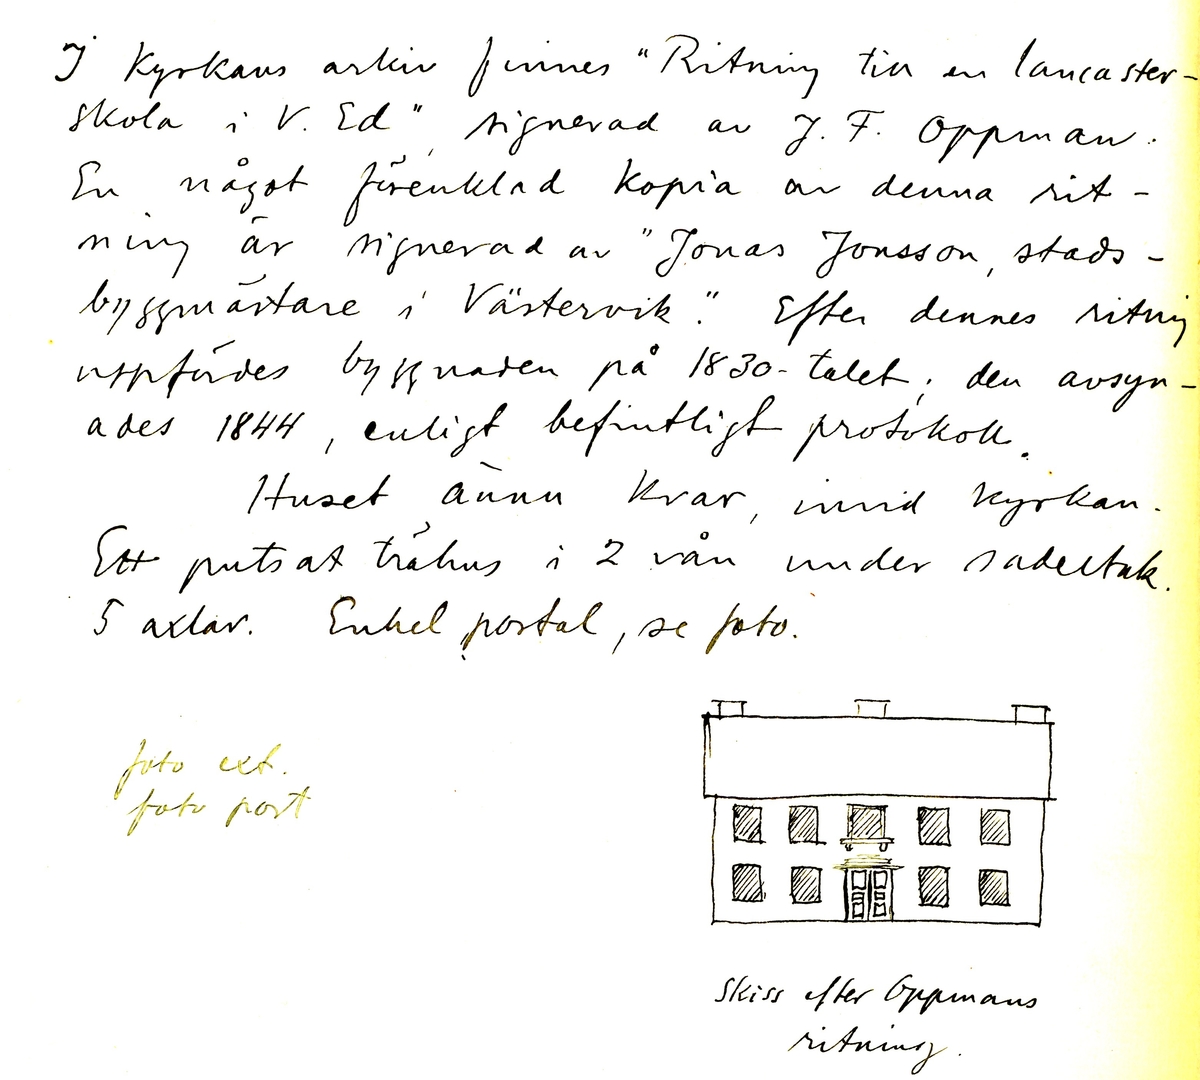 I kyrkans arkiv finnes "Ritning till en lancaster-
skola i V. Ed", signerad av J. F. Oppman.
En något förenklad kopia av denna rit-
ning är signerad av "Jonas Jonsson, stads-
byggmästare i Västervik." Efter dennes ritning
uppfördes byggnaden på 1830-talet; den avsyn-
ades 1844, enligt befintligt protokoll.
Huset ännu kvar, invid kyrkan.
Ett putsat trähus i 2 vån under sadeltak.
5 axlar. Enkel portal, se foto.
foto ext.
foto port
Skiss efter Oppmans
ritning.